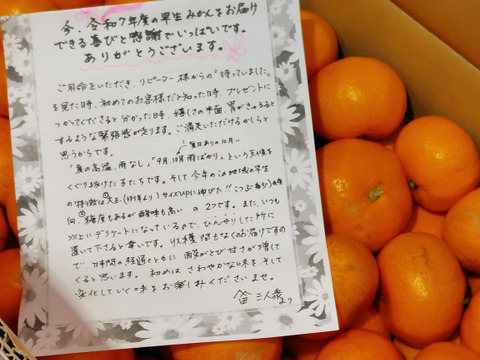 今、令和7年度の早生みかんをお届け
できる喜びと感謝でいっぱいです。
ありがとうございます。
ご用命をいただき、リピーター様からの"待っていました。
を見た時、初めてのお客様だと知った時、プレゼントに
つかってくださると分かった時、嬉しさの半面、胃がきゅるると
するような緊張感が走ります。ご満足いただけるかしらと
思うからです。
夏日ありの10月…
「夏の高温、雨なし」「9月、10月雨ばかり。」という天候を
くぐり抜けてきた子たちです。そして今年のこの地域の早生
の特徴は①大玉、(10月末より)サイズUPに伸びた!!こつぶ希少)の傾
向、②糖度もあるが酸味も高い の2つです。また、いつも
以上にデリケートになっているので、ひんやりした所に
置いて下さると幸いです。収穫間もなくのお届けですの
で、時間の経過とともに 酸がとび甘さが増して
くると思います。初めは さわやかな味を そして
変化していく味をお楽しみくださいませ。
三人衆より